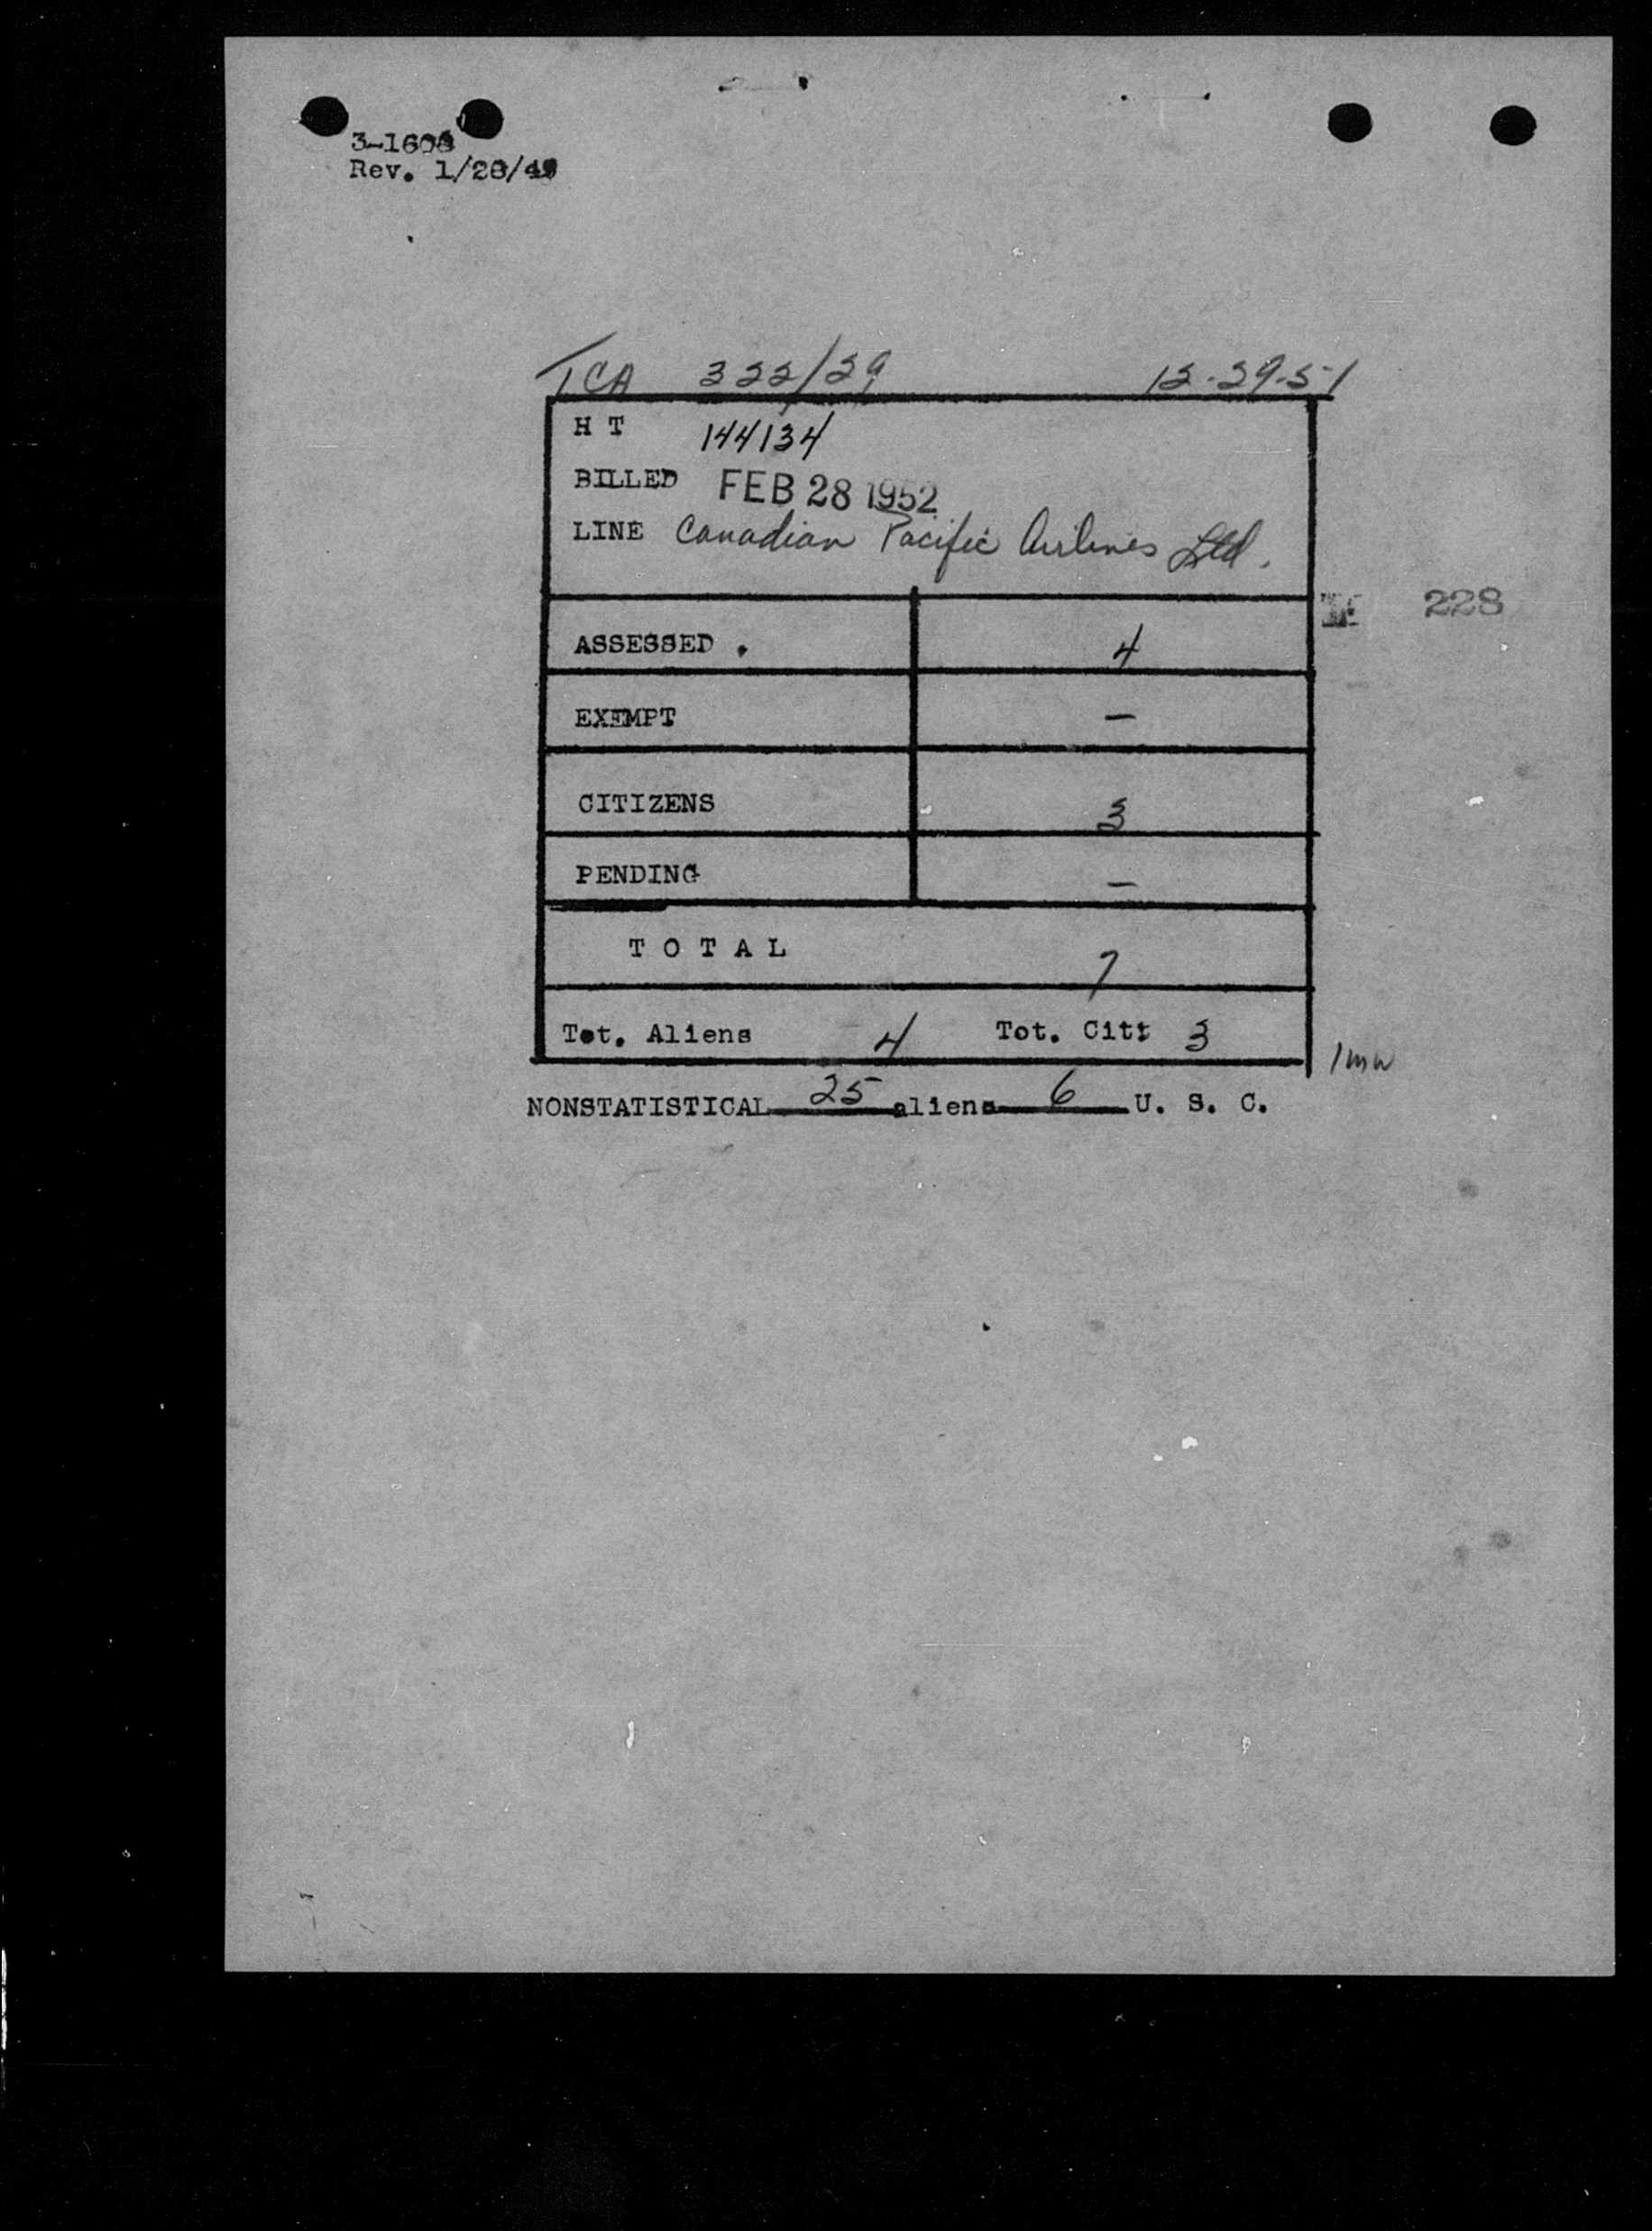 3-1606
Rev. 1/28/49
TCA 322/29 12-29-51
H T 144134
BILLED FEB 28 1952
LINE Canadian Pacific Airlines Ltd.
228
ASSESSED . 4
EXEMPT —
CITIZENS 3
PENDING —
T O T A L 7
Tot. Aliens 4 Tot. Cit: 3
NONSTATISTICAL 25 aliens 6 U. S. C.